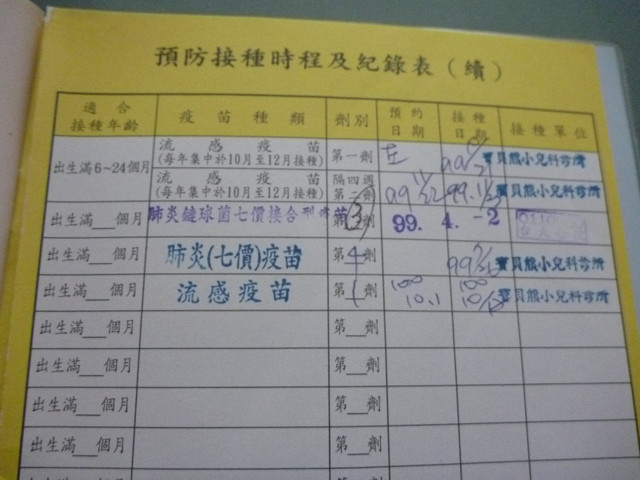 預防接種時程及紀錄表（續）
適合接種年齡 疫苗種類 劑別 預約日期 接種日期 接種單位
出生滿6~24個月 流感疫苗 第一劑 寶貝熊小兒科診所
(每年集中於10月至12月接種)
流感疫苗 隔四週 寶貝熊小兒科診所
(每年集中於10月至12月接種) 第二劑 99.
出生滿__個月 肺炎鏈球菌七價接合型疫苗 3 99. 4. -2
出生滿__個月 肺炎(七價)疫苗 第4劑 寶貝熊小兒科診所
出生滿__個月 流感疫苗 第1劑 100 10.1 100 寶貝熊小兒科診所
出生滿__個月 第__劑
出生滿__個月 第__劑
出生滿__個月 第__劑
出生滿__個月 第__劑